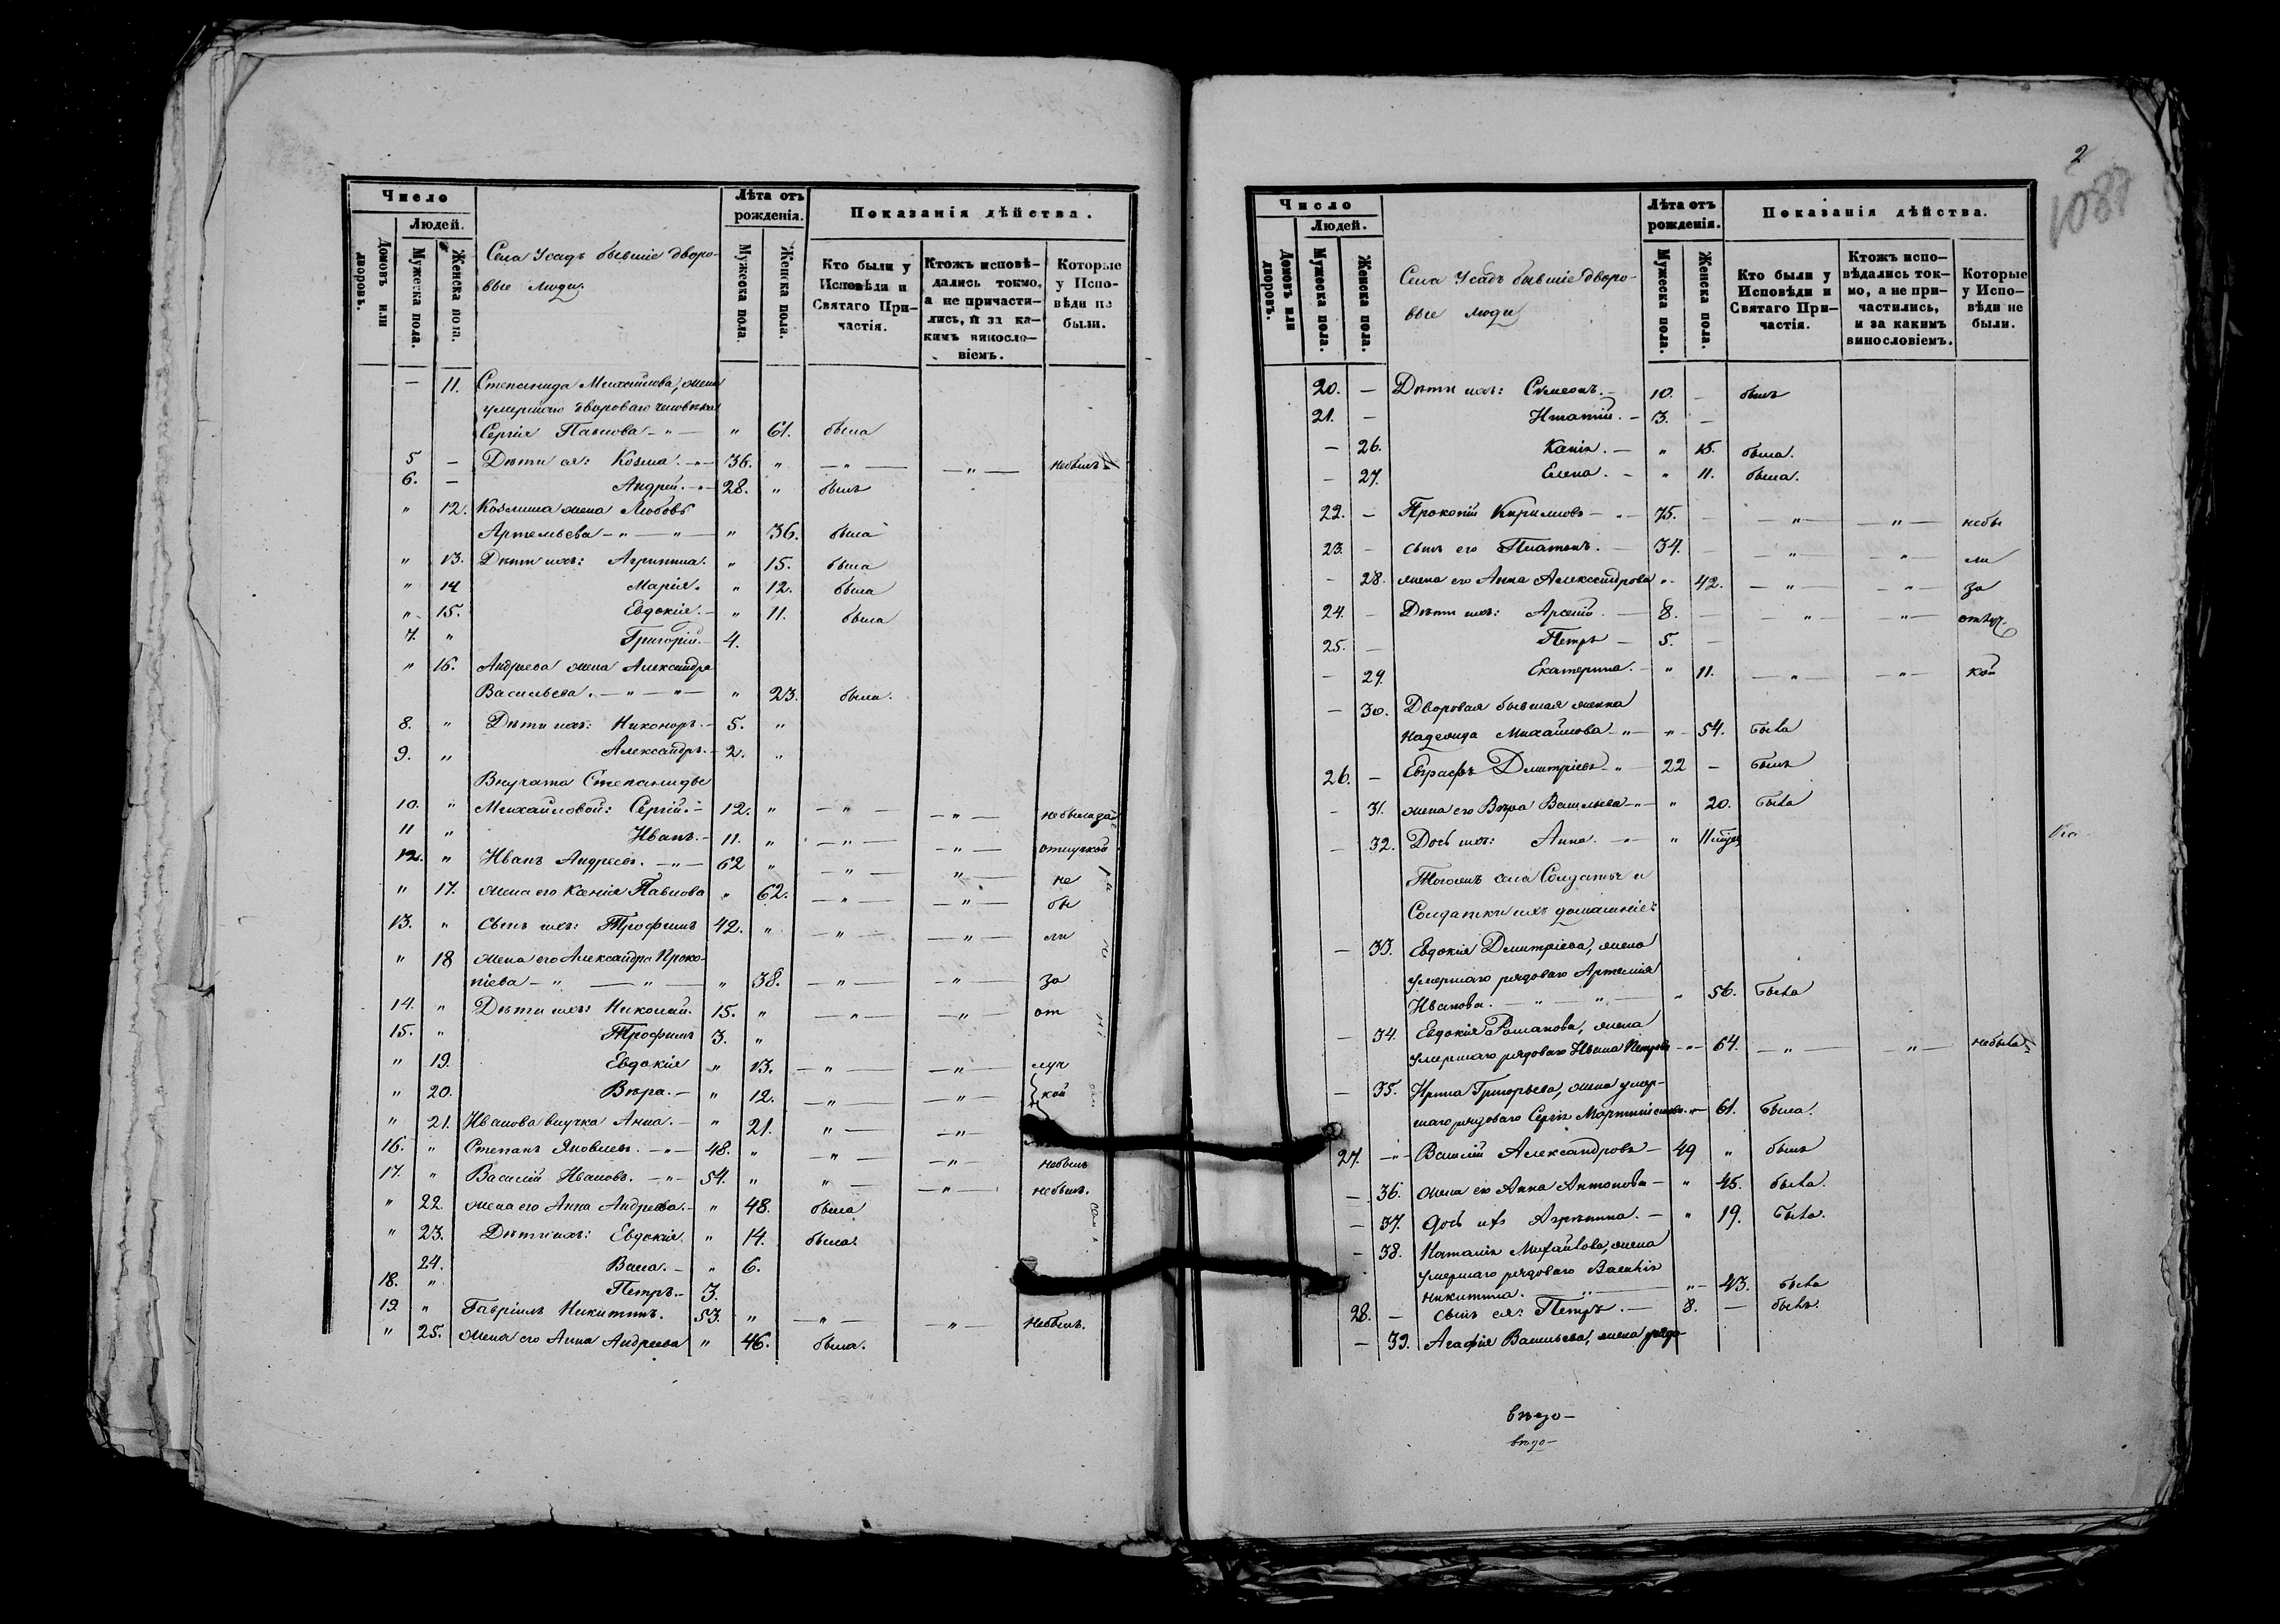 Число
Людей.
Домовъ или дворовъ.
Мужеска пола.
Женска пола.
Села Усадъ бывшіе дворо-
вые люди.
Лѣта отъ рожденія.
Мужеска пола.
Женска пола.
Показанія дѣйства.
Кто были у Исповѣди и Святаго При-частія.
Ктожъ исповѣ-дались токмо, а не причасти-лись, и за ка-кимъ винослο-віемъ.
Которые у Испо-вѣди не были.
— 11. Степанида Михайлова, жена
умершаго двороваго человѣка
Сергія Павлова — " — " 61. была
5 — Дѣти ея: Козма. — 36. " — " — — " — небылъ
6. — Андрей. — 28. " былъ
" 12. Козмина жена Любовь
Артемьева — " — " — " 36. была
" 13. Дѣти ихъ: Агрипина. " 15. была
" 14 Марія. " 12. была
" 15. Евдокія. — " 11. была
7. " Григорій. — 4.
" 16. Андреева жена Александра
Васильева. — " — " — " 23. была.
8. " Дѣти ихъ: Никоноръ. — 5. "
9. " Александръ. — 2. "
Внучата Степаниды
10. " Михайловой: Сергій. — 12. " — " — — " — небыли за
11 " Иванъ. — 11. " — " — — " — отлучкой
12. " Иванъ Андреевъ. — " — 62 " — " — " — не
" 17. жена его Ксенія Павлова " 62. — " — — " — бы
13. " Сынъ ихъ: Трофимъ 42. " — " — — " — ли
" 18 жена его Александра Проко-
піева — " — " — " 38. — " — — " — за
14. " Дѣти ихъ: Николай. 15. " — " — — " — от
15. " Трофимъ 3. "
" 19. Евдокія " 13. — " — — " — луч
" 20. Вѣра. — " 12. — " — — " — кой
" 21. Иванова внучка Анна. — " 21. " — — " —
16. " Степанъ Яковлевъ. — " — 48. " — " — — " — небылъ
17. " Василій Ивановъ. — " — 54. " " — — " — небылъ.
" 22. жена его Анна Андреева. — " 48. была
" 23. Дѣти ихъ: Евдокія. " 14. была.
24. Васа. — " 6.
18. " Петръ. — 3.
19. " Гавріилъ Никитинъ. 53. " — " — — " — Небылъ.
" 25. жена его Анна Андреева " 46. была.
2
1088
Число
Людей.
Домовъ или дворовъ.
Мужеска пола.
Женска пола.
Села Усадъ бывшіе дворо-
вые люди
Лѣта отъ рожденія.
Мужеска пола.
Женска пола.
Показанія дѣйства.
Кто были у Исповѣди и Святаго При-частія.
Ктожъ испо-вѣдались ток-мо, а не при-частились, и за какимъ винословіемъ.
Которые у Испо-вѣди не были.
20. — Дѣти ихъ: Сѵмеонъ. — 10. — былъ
21. — Игнатій. — 3. —
— 26. Капія. — " 15. была.
— 27. Елена. — " 11. была.
22. — Прокопій Кириловъ — " — 75. — — " — — " — небы
23. — сынъ его Платонъ. — 34. — — " — " — ли
— 28. жена его Анна Александрова " — 42. — " — — " — за
24. — Дѣти ихъ: Арсеній. — 8. — — " — — " — отлуч.
25. — Петръ — 5. —
— 29. Екатерина. — " 11. — " — — " — кой
— 30. Дворовая бывшая женка
Надежда Михайлова — " — " — 54. была
26. — Евграфъ Дмитріевъ — " 22 — былъ
— 31. жена его Вѣра Васильева — " — " 20. была
— 32. Дочь ихъ: Анна. — " — "
Тогожъ села Солдаты и
Солдатки ихъ домашніе:
— 33. Евдокія Дмитріева, жена
умершаго рядоваго Артемія
Иванова. — " — " — " 56. была
— 34. Евдокія Романова, жена
умершаго рядоваго Ивана Петрова — " — 64. — " — " — небыла
— 35. Ирина Григорьева, жена умер-
шаго рядоваго Сергія " — 61. была.
27. — " — Василій Александровъ — 49 " былъ
— 36. жена его Анна Антонова — " 45. была.
— 37. дочь ихъ Агрипина. — " 19. была.
— 38. Наталія Михайлова, жена
умершаго рядоваго Василія
Никитина. — " — " — 43. была
28. — сынъ ея: Петръ. — 8. — былъ.
— 39. Агафія Васильева, жена рядо-